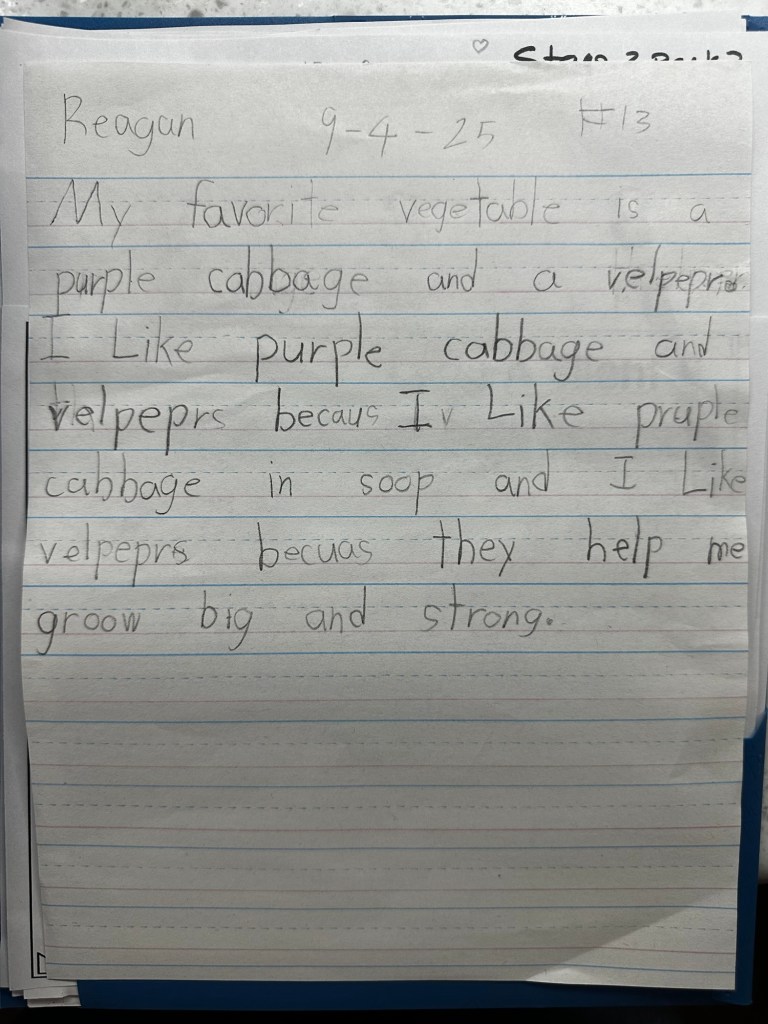 Reagan 9-4-25 #13
My favorite vegetable is a
purple cabbage and a velpeprs.
I Like purple cabbage and
velpeprs becaus I Like pruple
cabbage in soop and I Like
velpeprs becuas they help me
groow big and strong.